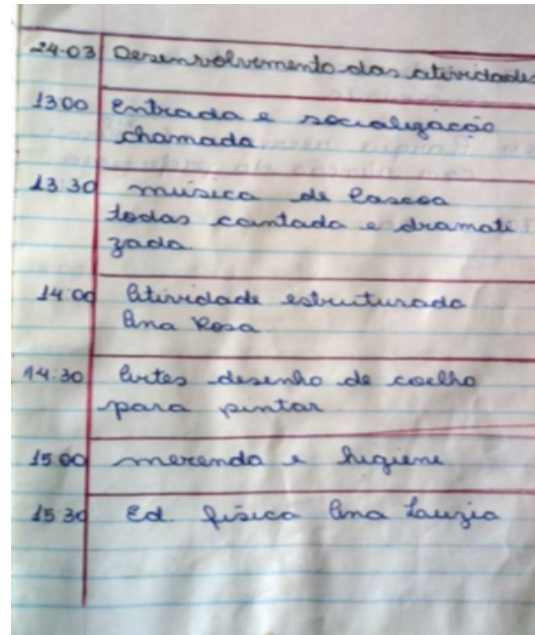 24-03 Desenvolvimento das atividades
13:00 Entrada e socialização
chamada
13:30 música de Páscoa
todas cantada e dramati
zada.
14:00 Atividade estruturada
Ana Rosa.
14:30 Artes desenho de coelho
para pintar
15:00 merenda e higiene
15:30 Ed. física Ana Lauzia